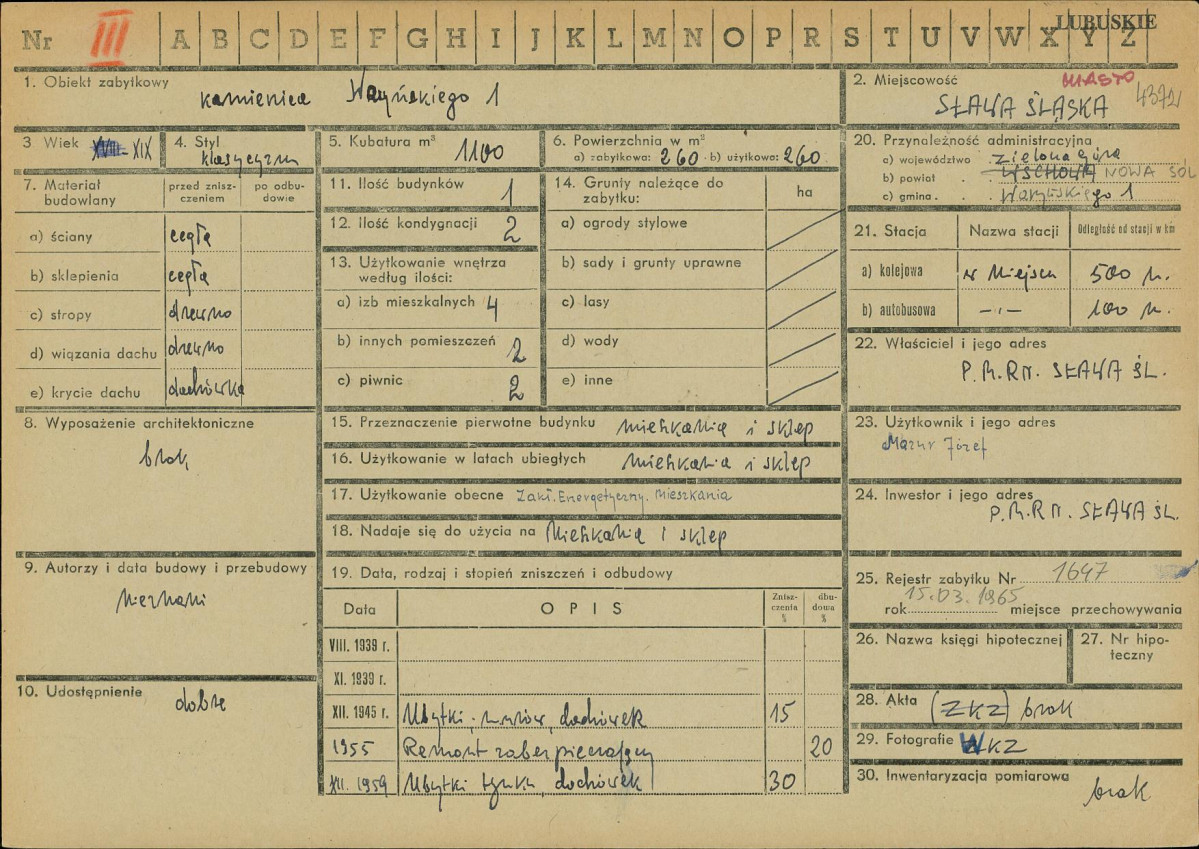 LUBUSKIE
Nr III A B C D E F G H I J K L M N O P R S T U V W X Y Z
1. Obiekt zabytkowy
kamienica Waryńskiego 1
2. Miejscowość
MIASTO
SŁAWA ŚLĄSKA 4372
3 Wiek XVIII- XIX
4. Styl
klasycyzm
5. Kubatura m³ 1100
6. Powierzchnia w m²
a) zabytkowa: 260 b) użytkowa: 260
20. Przynależność administracyjna
a) województwo Zielona Góra
b) powiat . . WSCHOWA NOWA SÓL
c) gmina . . Waryńskiego 1
7. Materiał budowlany
przed zniszczeniem
po odbudowie
a) ściany cegła
b) sklepienia cegła
c) stropy drewno
d) wiązania dachu drewno
e) krycie dachu dachówka
11. Ilość budynków 1
12. Ilość kondygnacji 2
13. Użytkowanie wnętrza
według ilości:
a) izb mieszkalnych 4
b) innych pomieszczeń 2
c) piwnic 2
14. Grunty należące do
zabytku:
ha
a) ogrody stylowe
b) sady i grunty uprawne
c) lasy
d) wody
e) inne
21. Stacja Nazwa stacji Odległość od stacji w km
a) kolejowa w Miejscu 500 m.
b) autobusowa -"- 100 m.
22. Właściciel i jego adres
P.M.RN. SŁAWA ŚL.
8. Wyposażenie architektoniczne
brak
15. Przeznaczenie pierwotne budynku mieszkania i sklep
16. Użytkowanie w latach ubiegłych mieszkania i sklep
17. Użytkowanie obecne Zakł. Energetyczny. Mieszkania
18. Nadaje się do użycia na Mieszkanie i sklep
23. Użytkownik i jego adres
Mazur Józef
24. Inwestor i jego adres
P.M.RN. SŁAWA ŚL.
9. Autorzy i data budowy i przebudowy
nieznani
10. Udostępnienie
dobre
19. Data, rodzaj i stopień zniszczeń i odbudowy
Data OPIS Zniszczenia % dbudowa %
VIII. 1939 r.
XI. 1939 r.
XII. 1945 r. Ubytki murów, dachówek 15
1955 Remont zabezpieczający 20
XII. 1959 Ubytki tynku, dachówek 30
25. Rejestr zabytku Nr 1647
rok 15.03.1965 miejsce przechowywania
26. Nazwa księgi hipotecznej
27. Nr hipoteczny
28. Akta (ZKZ) brak
29. Fotografie WKZ
30. Inwentaryzacja pomiarowa
brak